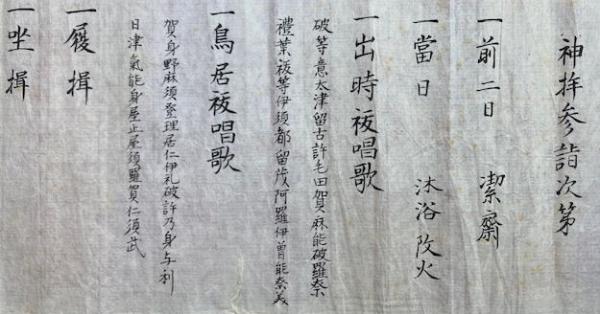 神拝参詣次第
一前二日 潔齋
一當日 沐浴改火
一出時祓唱歌
破等意太津留古許毛田賀麻能破羅奈
禮葉祓等伊須都留茂阿羅伊曾能奈美
一鳥居祓唱歌
賀身野麻須登理居仁伊礼破許乃身与利
日津氣能身屋止屋須羅賀仁須武
一履揖
一坐揖